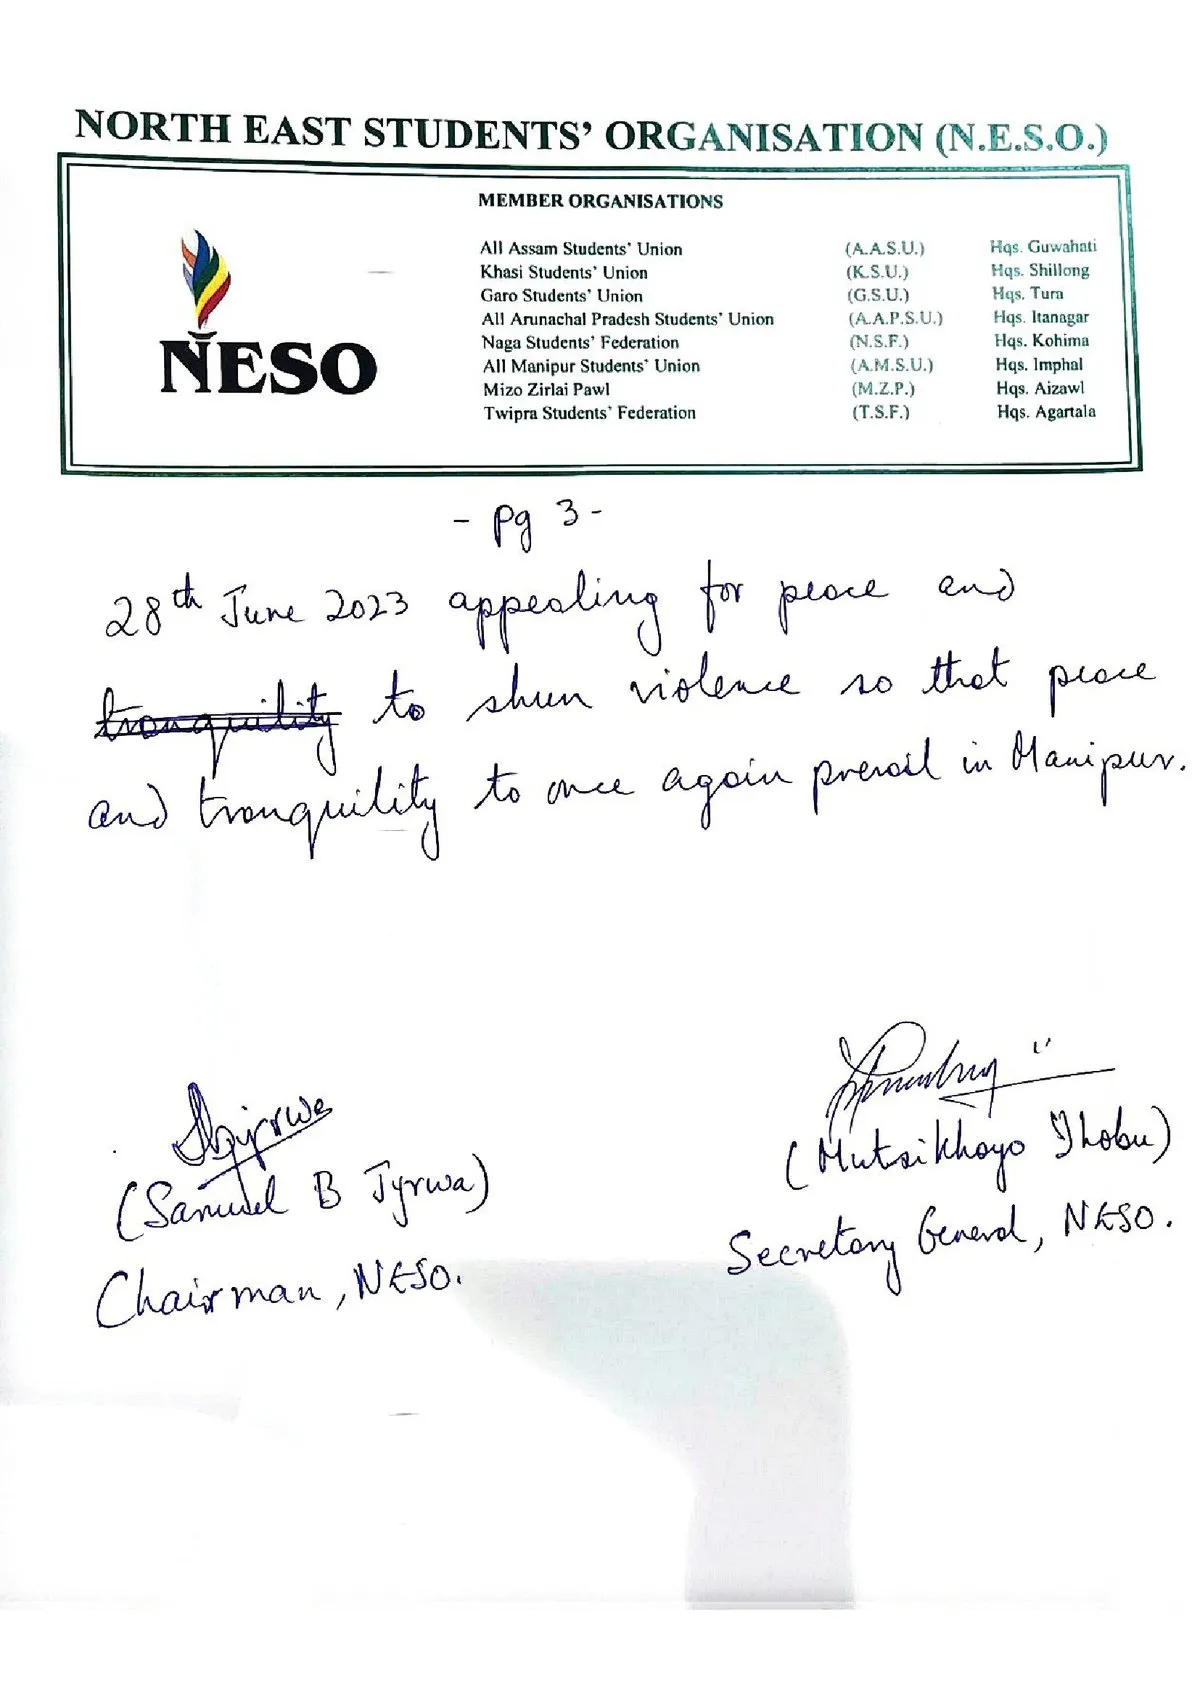 NORTH EAST STUDENTS' ORGANISATION (N.E.S.O.)
MEMBER ORGANISATIONS
All Assam Students' Union (A.A.S.U.) Hqs. Guwahati
Khasi Students' Union (K.S.U.) Hqs. Shillong
Garo Students' Union (G.S.U.) Hqs. Tura
All Arunachal Pradesh Students' Union (A.A.P.S.U.) Hqs. Itanagar
Naga Students' Federation (N.S.F.) Hqs. Kohima
All Manipur Students' Union (A.M.S.U.) Hqs. Imphal
Mizo Zirlai Pawl (M.Z.P.) Hqs. Aizawl
Twipra Students' Federation (T.S.F.) Hqs. Agartala
NESO
- Pg 3 -
28th June 2023 appealing for peace and
tranquility to shun violence so that peace
and tranquility to once again prevail in Manipur.
(Samuel B Jyrwa)
Chairman, NESO.
(Mutsikhoyo Yhobu)
Secretary General, NESO.